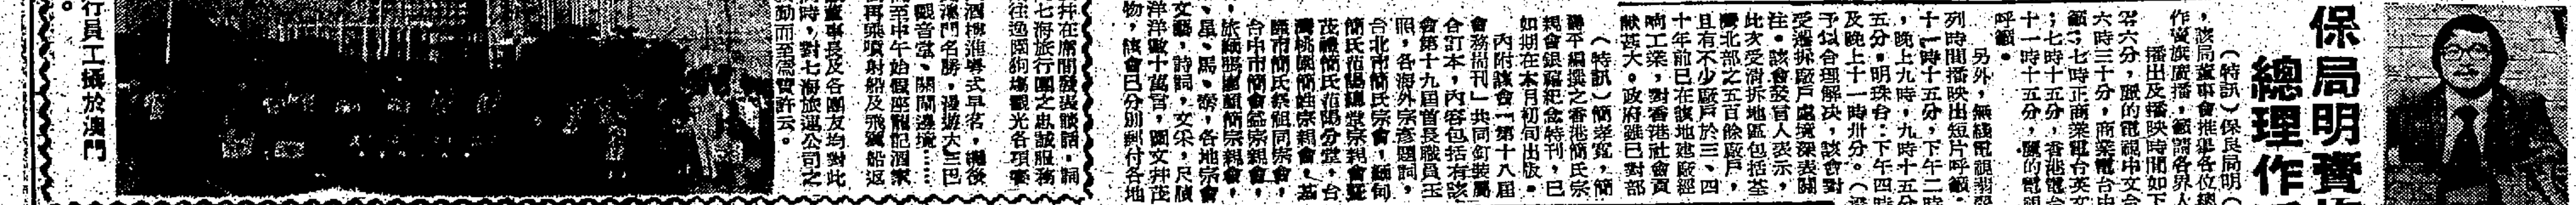 保局明賣
總理作
（特訊）保良局明
，該局董事會推舉各位總
作賣旗廣播，籲請各界人
播出及播映時間如下
零六分，麗的電視中文台
六時三十分，商業電台中
籲；七時正商業電台英文
；七時十五分，香港電台
十一時十五分，麗的電視
呼籲。
另外，無綫電視翡翠
列時間播映出短片呼籲。
十一時十五分，下午二時
，晚上九時，九時十五分
五分。明珠台：下午四時
及晚上十一時卅分。
予以合理解決，該會對
受遷拆廠戶處境深表關
注。該會發言人表示，
此次受清拆地區包括荃
灣北部之五百餘廠戶，
且有不少廠戶於三、四
十年前已在該地建廠經
响工業，對香港社會貢
献甚大。政府雖已對部
（特訊）簡孝寬，簡
靜平編撰之香港簡氏宗
親會銀禧紀念特刊，已
如期在本月初旬出版。
內附該會「第十八屆
會務揭刊」共同釘裝屬
合訂本，內容包括有該
會第十九屆首長職員玉
照，各海外宗彥題詞，
台北市簡氏宗親會，緬甸
簡氏范陽總堂宗親會暨
茂禮簡氏范陽分堂，台
灣桃園簡姓宗親會，基
隆市簡氏祭祖同宗會，
台中市簡會益宗親會，
旅緬張廖簡宗親會，
星、馬、泰，各地宗會
文藝，詩詞，文采，尺牘
洋洋數十萬言，圖文并茂
物，該會已分別剜付各地
井在席間發表談話，詞
七海旅行團之忠誠服務
往逸園狗塲觀光各項賽
酒樓進粵式早茗，繼後
澳門名勝，漫遊大三巴
觀音堂、關閘邊境……
至中午始假座龍記酒家
再乘噴射船及飛翼船返
董事長及各團友均對此
時，對七海旅運公司之
動而至需實許云。
行員工攝於澳門